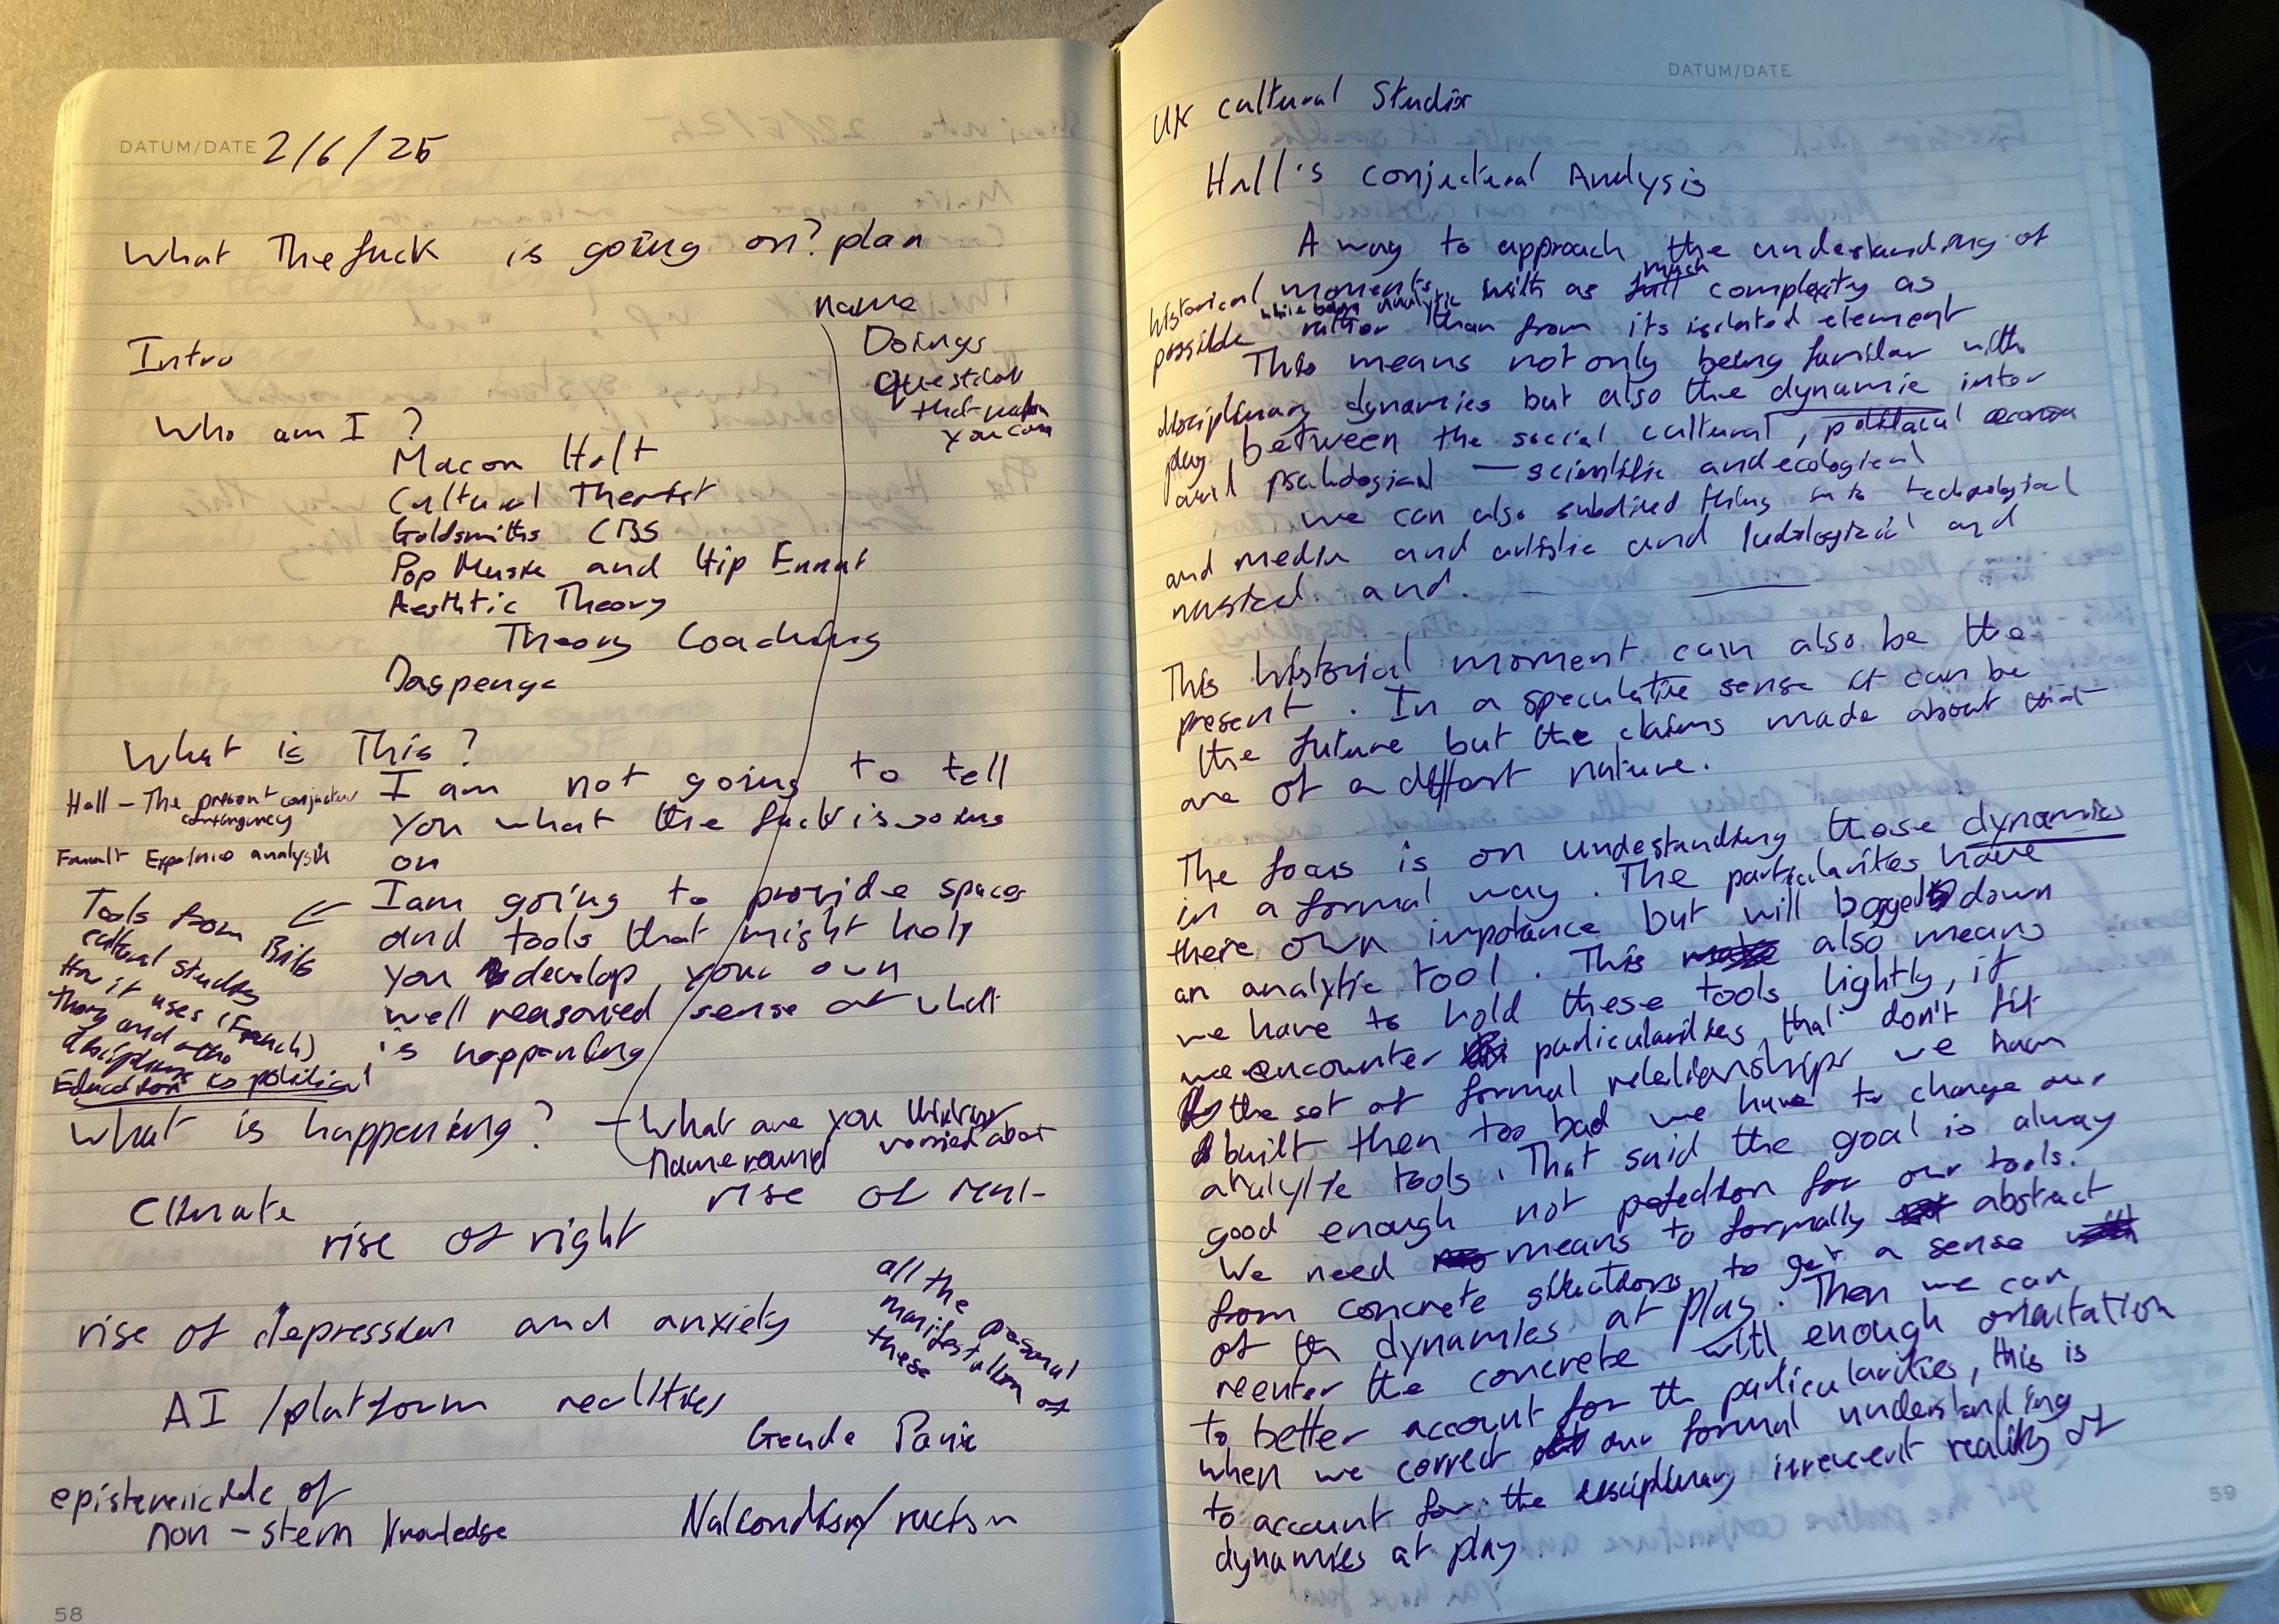 DATUM/DATE 2/6/25
What The fuck is going on? plan
Intro
name
Doings
Question
that
you
Who am I ?
Macon Holt
Cultural Theorist
Goldsmiths CBS
Pop Music and Hip Ennui
Aesthetic Theory
Theory Coaching
What is This?
I am not going to tell
you what the fuck is going
on
I am going to provide spaces
and tools that might help
you develop your own
well reasoned sense of what
is happening
Hall – The present conjecture
contingency
analysis
Tools from Brit
cultural studies
How it uses (French)
theory and other
disciplines
Education is political
What is happening?
What are you thinking
worried about
Name round
Climate
rise of right
rise of
rise of depression and anxiety
all the personal
manifestation of
these
AI / platform realities
Gende Panic
epistemicide of
non-stem knowledge
58
DATUM/DATE
UK cultural Studies
Hall's conjectural Analysis
A way to approach the understanding of
historical moments with as much complexity as
possible while being analytic rather than from its isolated element
This means not only being familiar with
disciplinary dynamics but also the dynamic inter
play between the social, cultural, political
and — scientific and ecological
We can also subdived thing into technological
and media and artistic and ludological and
musical and.
This historical moment can also be the
present. In a speculative sense it can be
the future but the claims made about that
are of a nature.
The focus is on understanding those dynamics
in a formal way. The particularites have
there own impotance but will bogged down
an analytic tool. This also means
we have to hold these tools lightly, if
we encounter particularities that don't fit
the set of formal relationships we have
built then too bad we have to change our
analytic tools. That said the goal is alway
good enough not for our tools.
We need means to formally abstract
from concrete situations, to get a sense
of th dynamics at play. Then we can
reenter the concrete with enough
to better account for th particularities, this is
when we correct our formal understanding
to account for the disciplinary irreverent reality of
dynamics at play
59